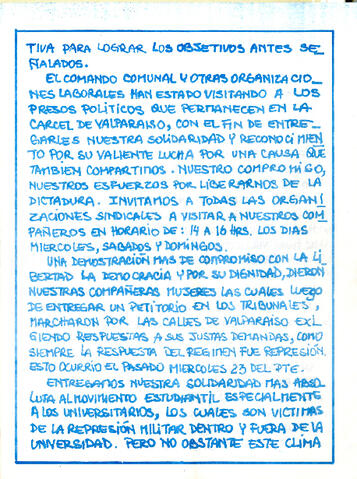 TIVA PARA LOGRAR LOS OBJETIVOS ANTES SE_
ÑALADOS.
EL COMANDO COMUNAL Y OTRAS ORGANIZACIO_
NES LABORALES HAN ESTADO VISITANDO A LOS
PRESOS POLITICOS QUE PERMANECEN EN LA
CARCEL DE VALPARAISO, CON EL FIN DE ENTRE_
GARLES NUESTRA SOLIDARIDAD Y RECONOCIMIEN_
TO POR SU VALIENTE LUCHA POR UNA CAUSA QUE
TAMBIEN COMPARTIMOS. NUESTRO COMPROMIGO,
NUESTROS ESFUERZOS POR LIBERARNOS DE LA
DICTADURA. INVITAMOS A TODAS LAS ORGANI_
ZACIONES SINDICALES A VISITAR A NUESTROS COM_
PAÑEROS EN HORARIO DE: 14 A 16 HRS. LOS DIAS
MIERCOLES, SABADOS Y DOMINGOS.
UNA DEMOSTRACIÓN MAS DE COMPROMISO CON LA LI_
BERTAD LA DEMOCRACIA Y POR SU DIGNIDAD, DIERON
NUESTRAS COMPAÑERAS MUJERES LAS CUALES LUEGO
DE ENTREGAR UN PETITORIO EN LOS TRIBUNALES,
MARCHARON POR LAS CALLES DE VALPARAISO EXI_
GIENDO RESPUESTAS A SUS JUSTAS DEMANDAS, COMO
SIEMPRE LA RESPUESTA DEL REGIMEN FUE REPRESIÓN.
ESTO OCURRIO EL PASADO MIERCOLES 23 DEL PTE.
ENTREGAMOS NUESTRA SOLIDARIDAD MAS ABSO_
LUTA AL MOVIMIENTO ESTUDIANTIL ESPECIALMENTE
A LOS UNIVERSITARIOS, LOS CUALES SON VICTIMAS
DE LA REPRESIÓN MILITAR DENTRO Y FUERA DE LA
UNIVERSIDAD. PERO NO OBSTANTE ESTE CLIMA